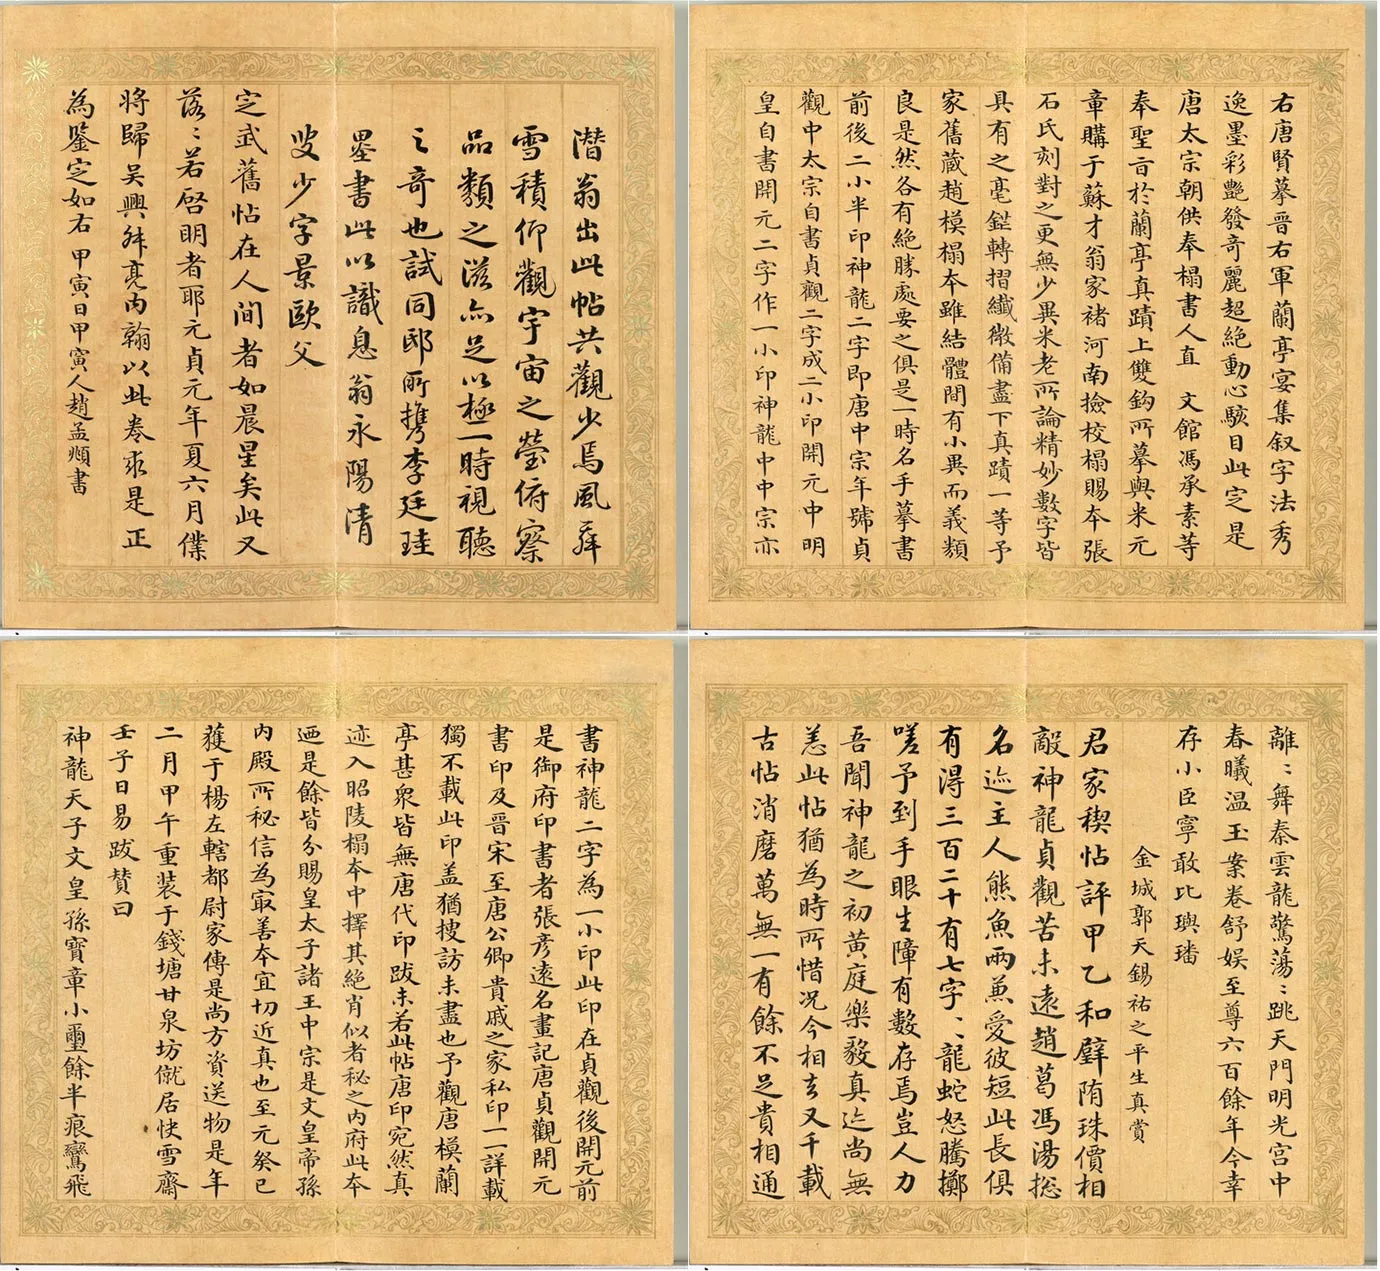 潛翁出此帖共觀少焉風
雪積仰觀宇宙之瑩俯察
品類之滋亦足以極一時視聽
之奇也試同邸所攜李廷珪
墨書此以識息翁永陽清
叟少字景歐父
定武舊帖在人間者如晨星矣此又
落〻若啓明者耶元貞元年夏六月僕
將歸吳興叔亮内翰以此卷求是正
為鑒定如右甲寅日甲寅人趙孟頫書
右唐賢摹晉右軍蘭亭宴集叙字法秀
逸墨彩艷發奇麗超絶動心駭目此定是
唐太宗朝供奉榻書人直 文館馮承素等
奉聖旨於蘭亭真蹟上雙鈎所摹與米元
章購于蘇才翁家褚河南撿校榻賜本張
石氏刻對之更無少異米老所論精妙數字皆
具有之毫鋩轉摺纎微備盡下真蹟一等予
家舊藏趙模榻本雖結體間有小異而義類
良是然各有絶勝處要之俱是一時名手摹書
前後二小半印神龍二字即唐中宗年號貞
觀中太宗自書貞觀二字成二小印開元中明
皇自書開元二字作一小印神龍中中宗亦
書神龍二字為一小印此印在貞觀後開元前
是御府印書者張彦遠名畫記唐貞觀開元
書印及晉宋至唐公卿貴戚之家私印一一詳載
獨不載此印盖猶搜訪未盡也予觀唐模蘭
亭甚衆皆無唐代印跋未若此帖唐印宛然真
迹入昭陵榻本中擇其絶肖似者秘之内府此本
迺是餘皆分賜皇太子諸王中宗是文皇帝孫
内殿所秘信為㝡善本宜切近真也至元癸巳
獲于楊左轄都尉家傳是尚方資送物是年
二月甲午重裝于錢塘甘泉坊僦居快雪齋
壬子日易跋賛曰
神龍天子文皇孫寶章小璽餘半痕鸞飛
離〻舞秦雲龍驚蕩〻跳天門明光宫中
春曦温玉案卷舒娱至尊六百餘年今幸
存小臣寧敢比璵璠
金城郭天錫祐之平生真賞
君家稧帖評甲乙和璧隋珠價相
敵神龍貞觀苦未遠趙葛馮湯捴
名迹主人熊魚兩兼愛彼短此長俱
有得三百二十有七字〻龍蛇怒騰擲
嗟予到手眼生障有數存焉豈人力
吾聞神龍之初黄庭樂毅真迹尚無
恙此帖猶為時所惜况今相去又千載
古帖消磨萬無一有餘不足貴相通